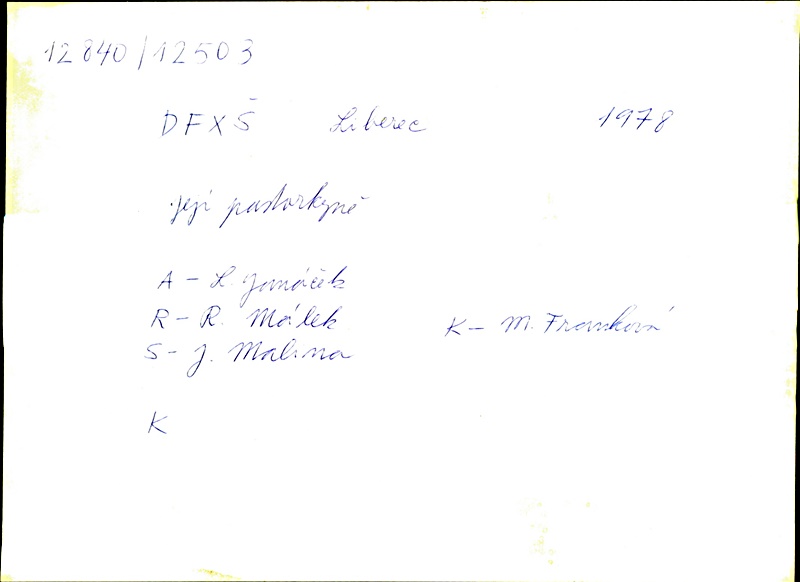 12840/12503
DFXŠ Liberec 1978
Její pastorkyně
A - L. Janáček
R - R. Málek K - M. Franková
S - J. Malina
K